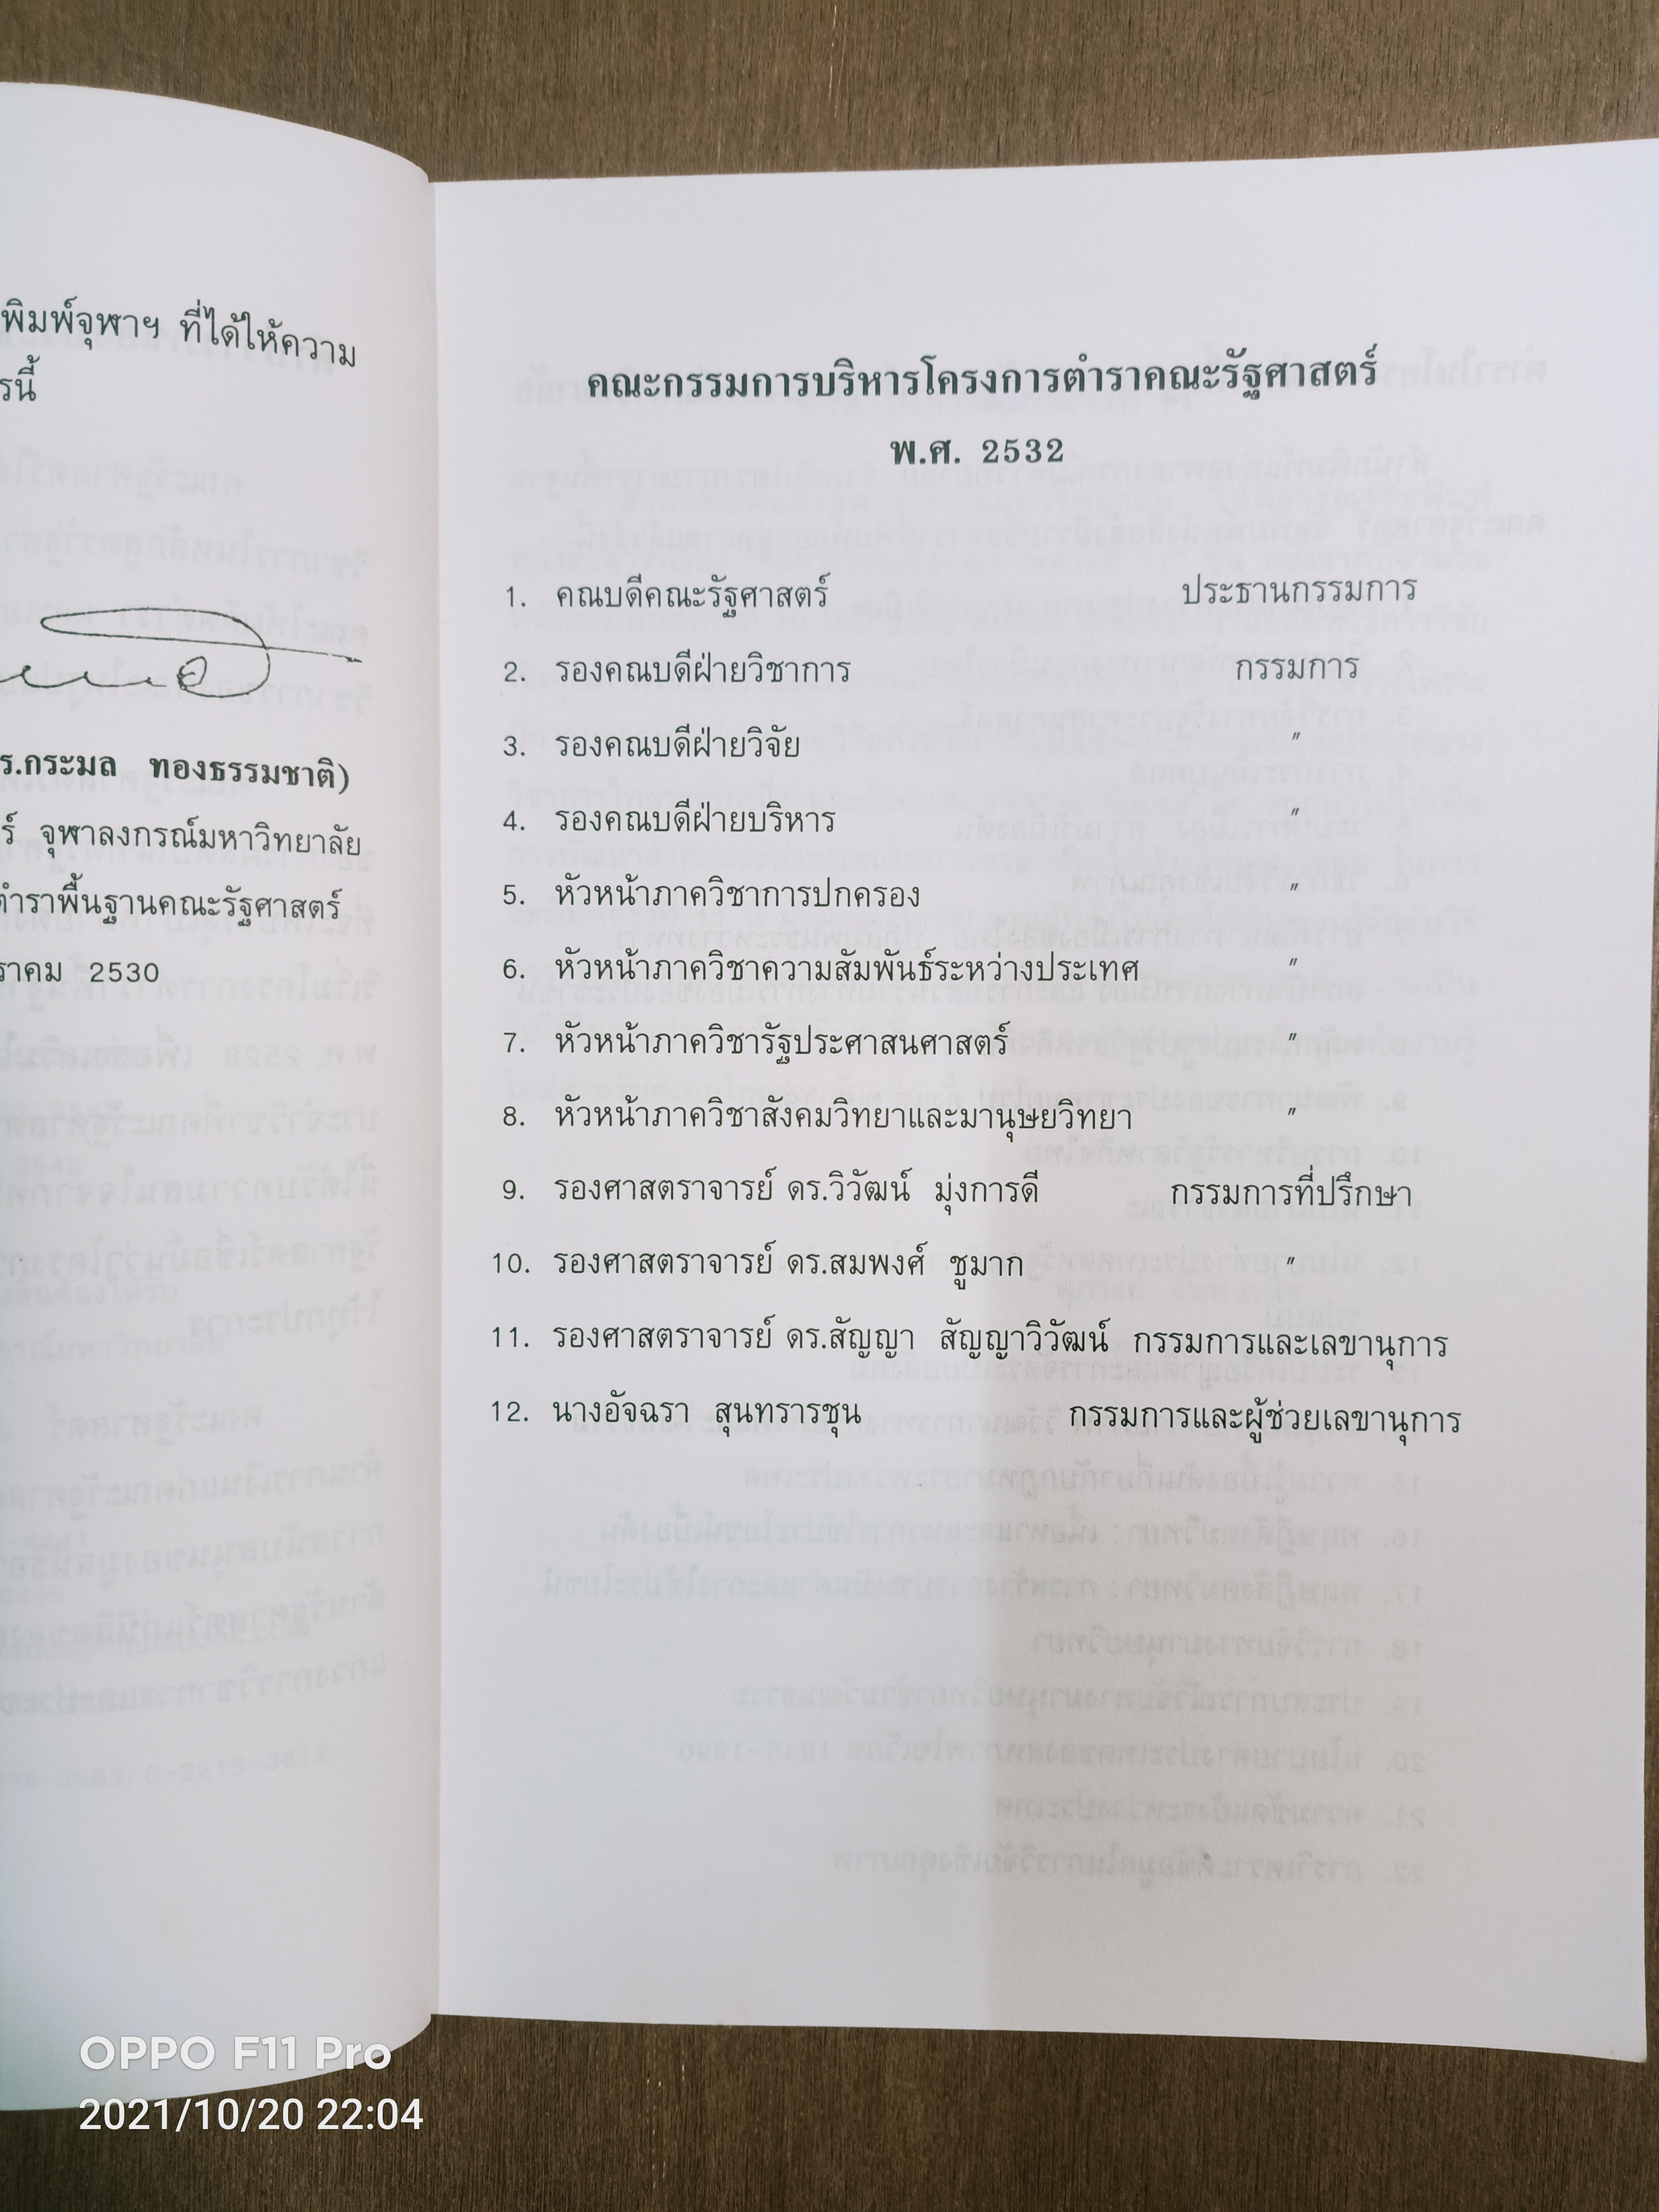 พิมพ์จุฬาฯ ที่ได้ให้ความ
รนี้
ร.กระมล ทองธรรมชาติ)
ร์ จุฬาลงกรณ์มหาวิทยาลัย
ตำราพื้นฐานคณะรัฐศาสตร์
ราคม 2530
คณะกรรมการบริหารโครงการตำราคณะรัฐศาสตร์
พ.ศ. 2532
1. คณบดีคณะรัฐศาสตร์ ประธานกรรมการ
2. รองคณบดีฝ่ายวิชาการ กรรมการ
3. รองคณบดีฝ่ายวิจัย "
4. รองคณบดีฝ่ายบริหาร "
5. หัวหน้าภาควิชาการปกครอง "
6. หัวหน้าภาควิชาความสัมพันธ์ระหว่างประเทศ "
7. หัวหน้าภาควิชารัฐประศาสนศาสตร์ "
8. หัวหน้าภาควิชาสังคมวิทยาและมานุษยวิทยา "
9. รองศาสตราจารย์ ดร.วิวัฒน์ มุ่งการดี กรรมการที่ปรึกษา
10. รองศาสตราจารย์ ดร.สมพงศ์ ชูมาก "
11. รองศาสตราจารย์ ดร.สัญญา สัญญาวิวัฒน์ กรรมการและเลขานุการ
12. นางอัจฉรา สุนทรารชุน กรรมการและผู้ช่วยเลขานุการ
OPPO F11 Pro
2021/10/20 22:04